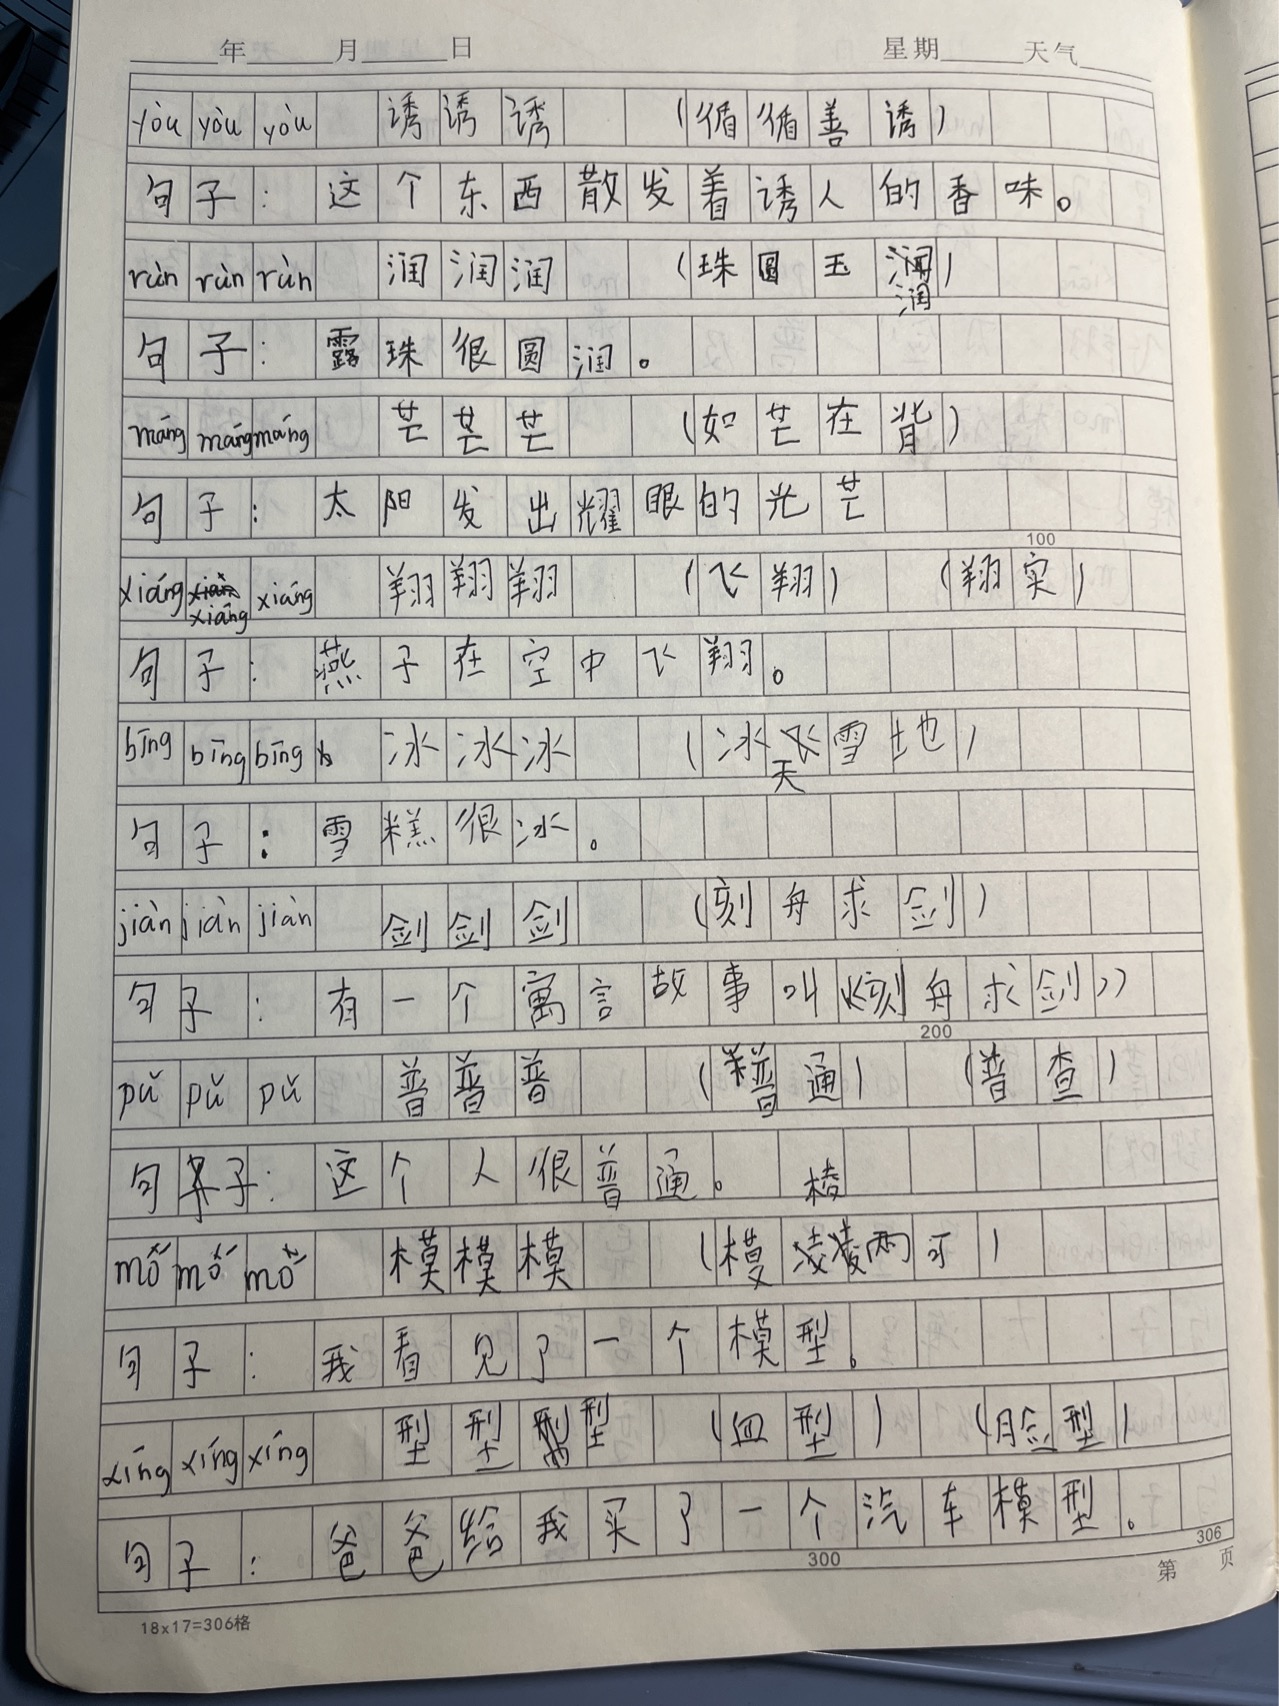 年 月 日 星期 天气
yòu yòu yòu 诱诱诱 (循循善诱)
句子：这个东西散发着诱人的香味。
rùn rùn rùn 润润润 (珠圆玉润)
句子：露珠很圆润。
máng máng máng 芒芒芒 (如芒在背)
句子：太阳发出耀眼的光芒
100
xiáng xiáng xiáng 翔翔翔 (飞翔) (翔实)
句子：燕子在空中飞翔。
bīng bīng bīng 冰冰冰 (冰天雪地)
句子：雪糕很冰。
jiàn jiàn jiàn 剑剑剑 (刻舟求剑)
句子：有一个寓言故事叫《刻舟求剑》
200
pǔ pǔ pǔ 普普普 (普通) (普查)
句子：这个人很普通。
mó mó mó 模模模 (模棱两可)
句子：我看见了一个模型。
xíng xíng xíng 型型型 (血型) (脸型)
句子：爸爸给我买了一个汽车模型。
300 306
第 页
18x17=306格